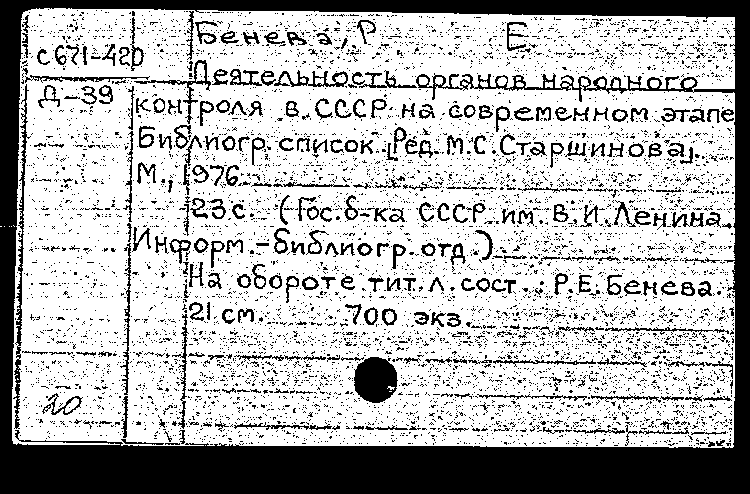 Бенева, Р Е
С 671-420
Деятельность органов народного
Д-39
контроля в СССР на современном этапе
Библиогр. список. [Ред. М.С. Старшинова].
М., 1976.
23 с. (Гос. б-ка СССР им. В.И. Ленина.
Информ.-библиогр. отд.)
На обороте тит. л. сост.: Р.Е. Бенева.
21 см. 700 экз.
20